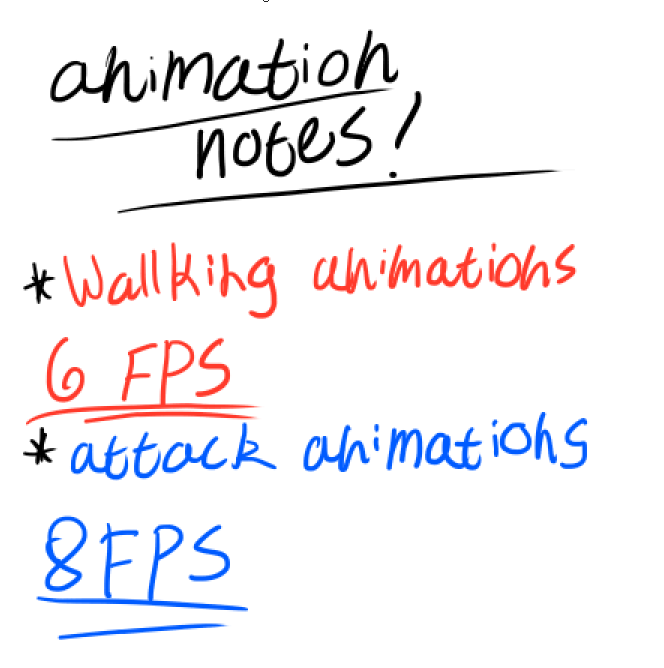 animation
notes!
* Wallking animations
6 FPS
* attack animations
8 FPS